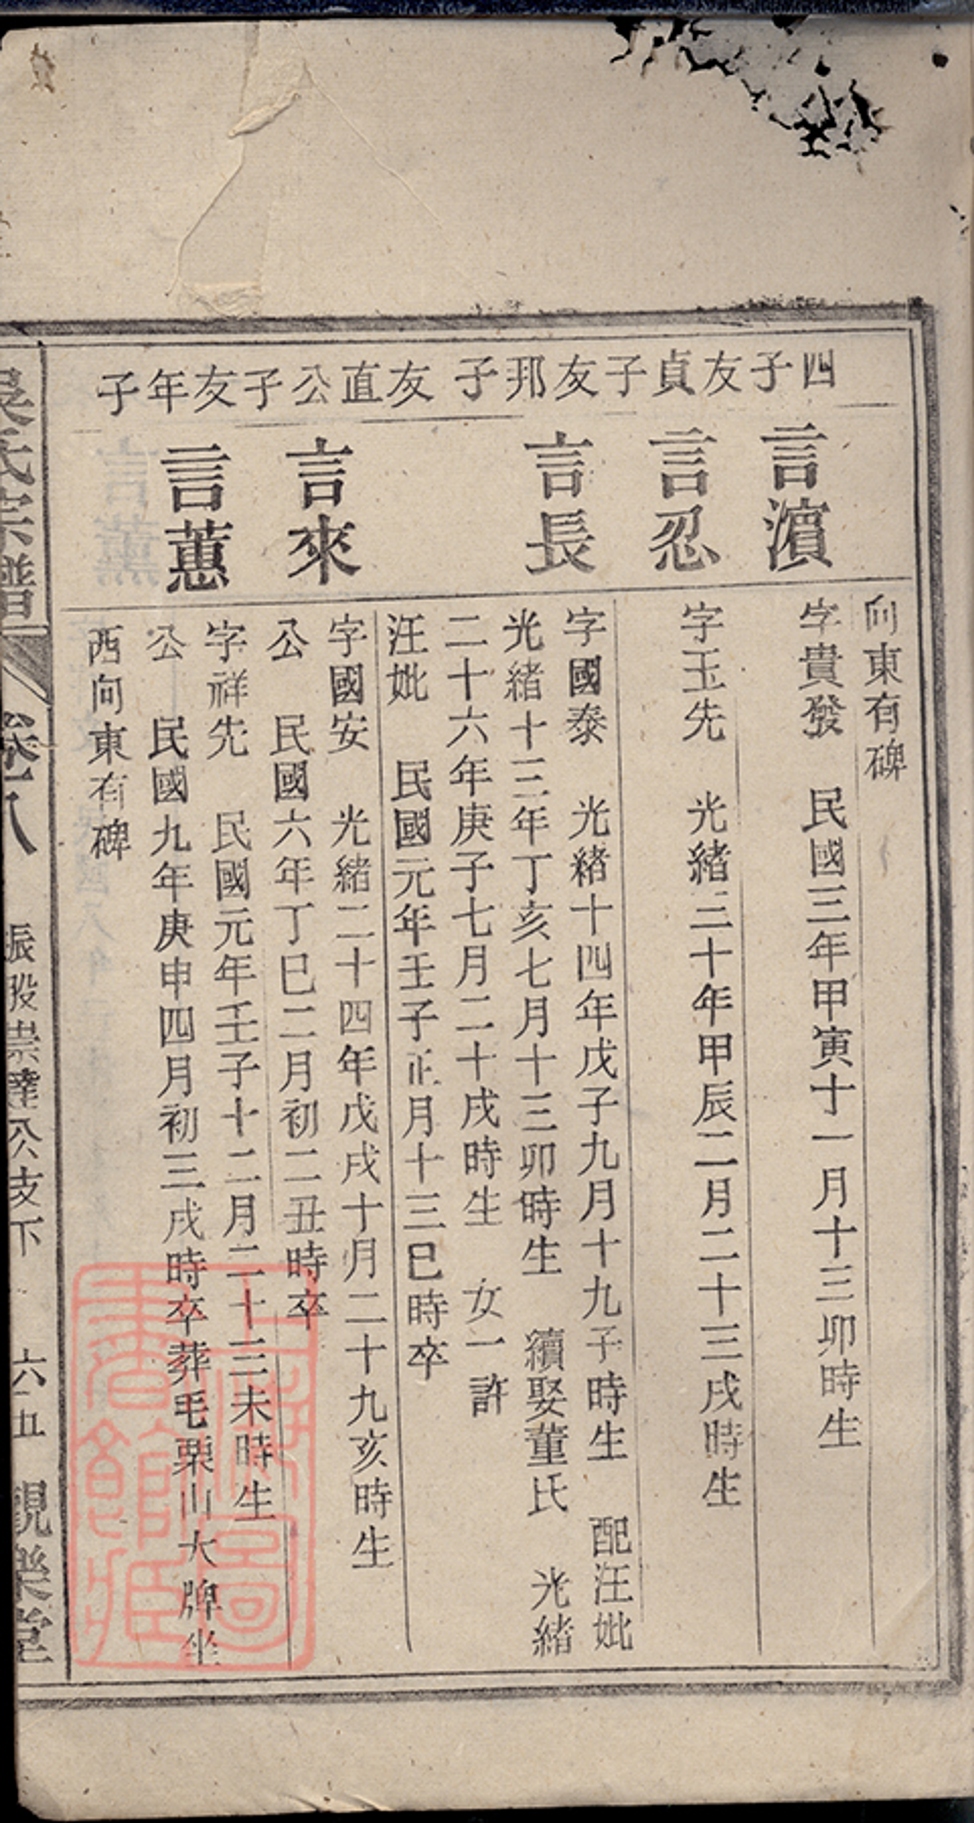 四子友貞子友邦子友直公子友年子
言濵
言忍
言長
言來
言蕙
向東有碑
字貴發 民國三年甲寅十一月十三卯時生
字玉先 光緒三十年甲辰二月二十三戌時生
字國泰 光緒十四年戊子九月十九子時生 配汪妣
光緒十三年丁亥七月十三卯時生 續娶董氏 光緒
二十六年庚子七月二十戌時生 女一許
汪妣 民國元年壬子正月十三巳時卒
字國安 光緒二十四年戊戌十月二十九亥時生
公 民國六年丁巳二月初二丑時卒
字祥先 民國元年壬子十二月二十三未時生
公 民國九年庚申四月初三戌時卒葬毛栗山大牌坐
西向東有碑
吳氏宗譜 卷八 振股崇達公支下 六五 觀樂堂
上海圖書館藏